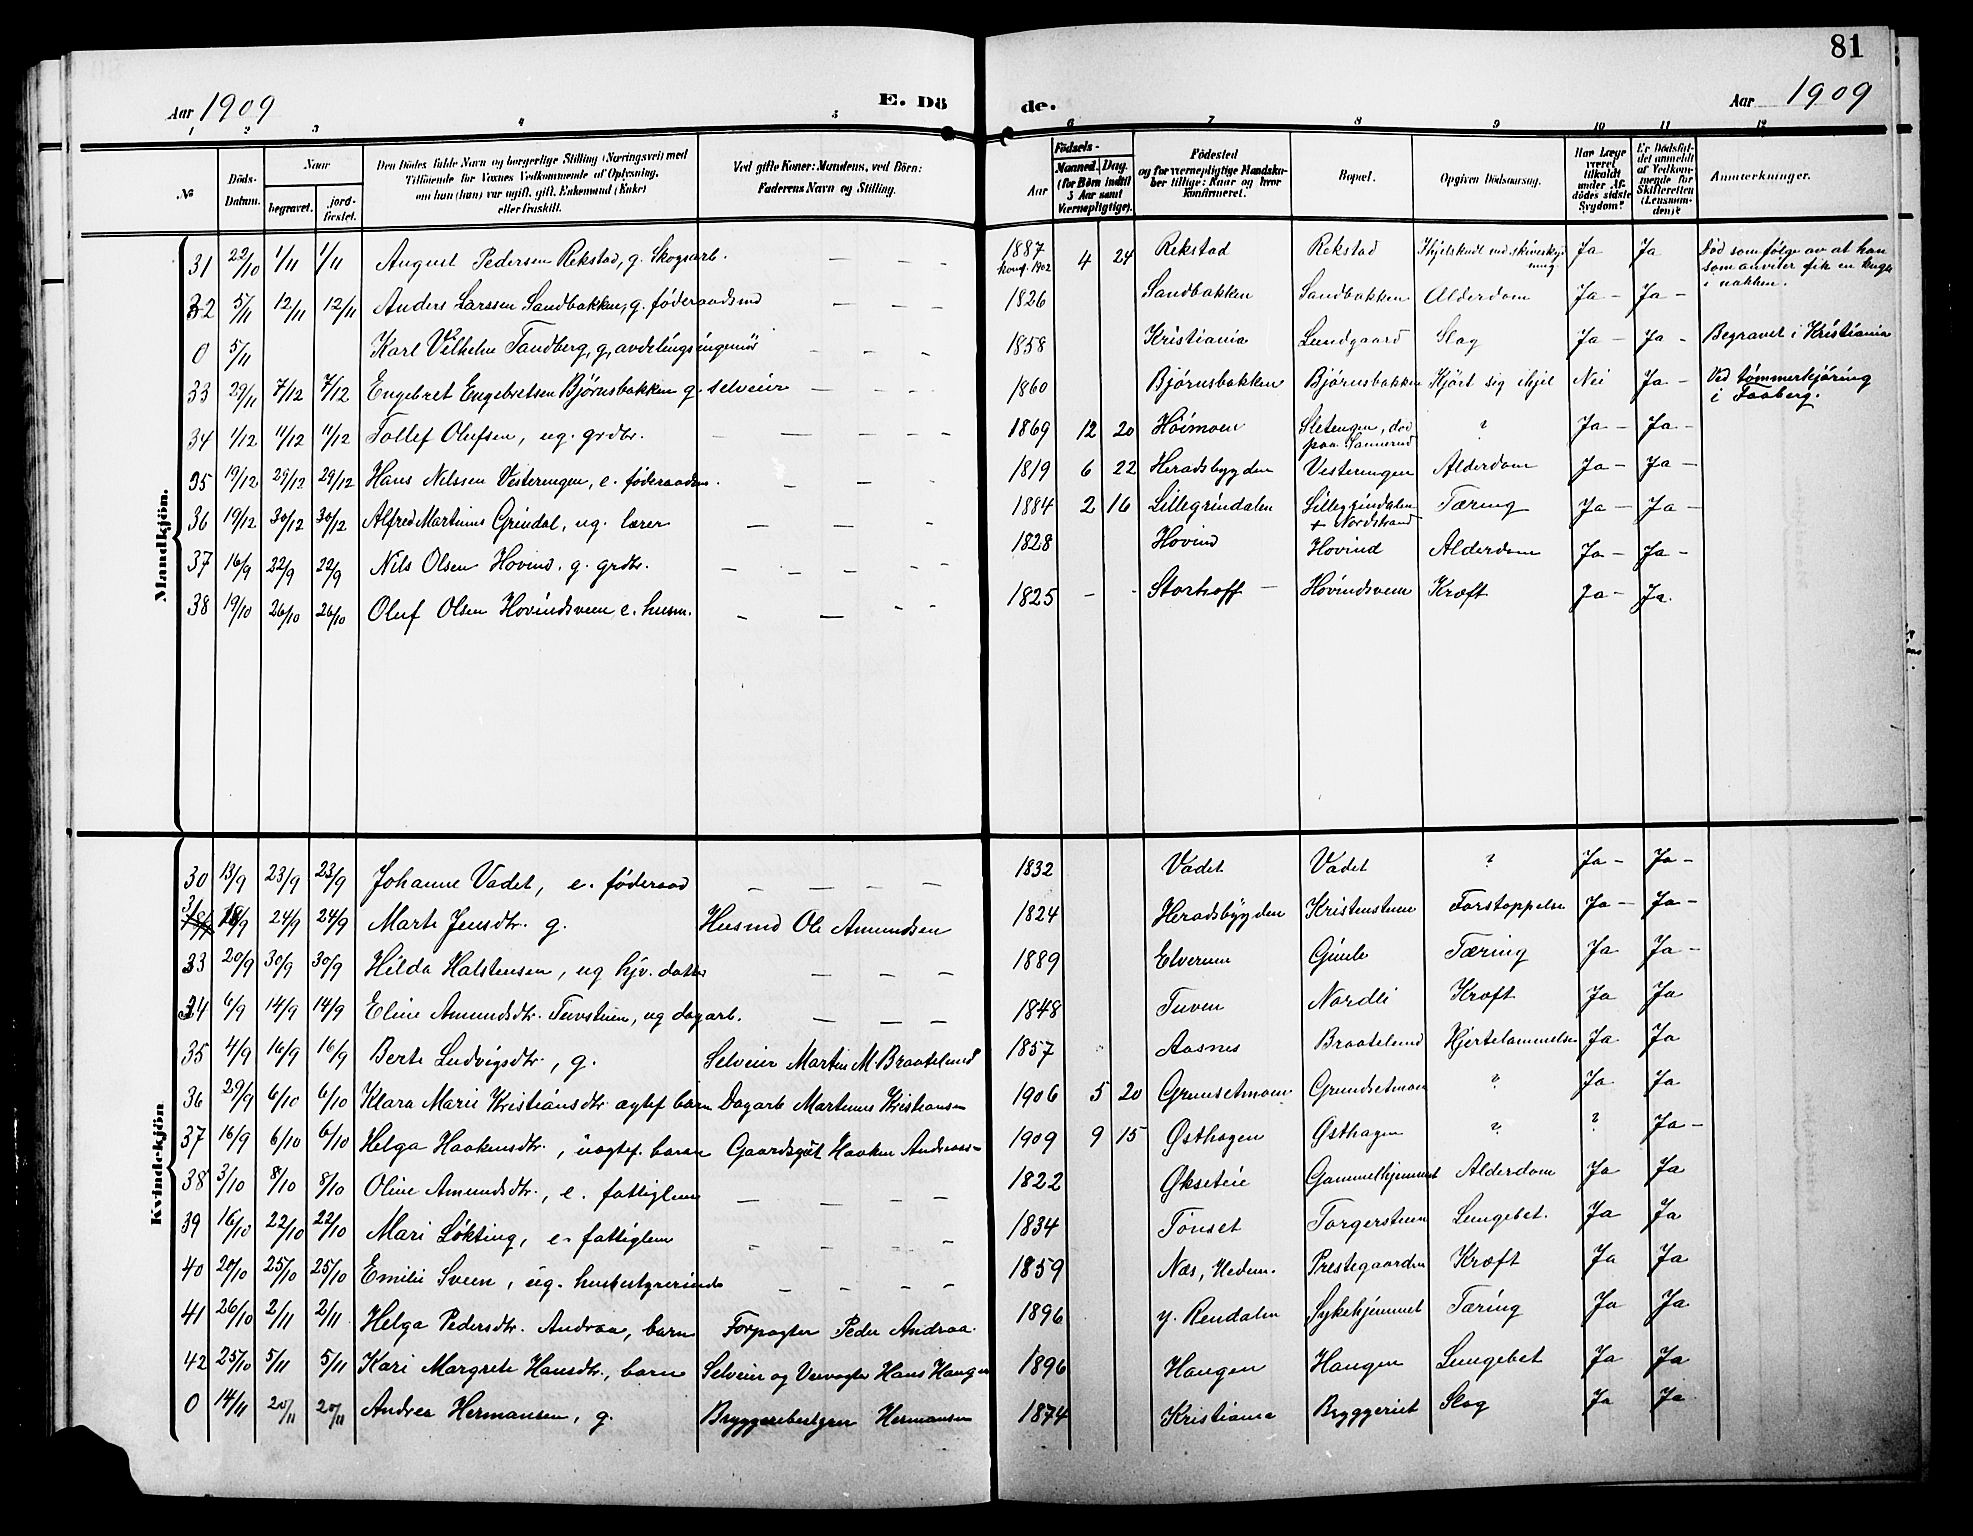 81
Aar 1909
E. Dö
de.
Aar 1909
1 2 3 4 5 6 7 8 9 10 11 12
No
Döds-
Datum.
Naar
begravet.
jord-
fæstet.
Den Dödes fulde Navn og borgerlige Stilling (Næringsvei) med
Tilföiende for Voxnes Vedkommende af Oplysning,
om han (hun) var ugift, gift, Enkemand (Enke)
eller fraskilt.
Ved gifte Koner: Mandens, ved Börn:
Faderens Navn og Stilling.
Födsels-
Aar
Maaned. Dag.
(for Börn indtil
5 Aar samt
Værnepligtige).
Födested
og for værnepligtige Mandska-
ber tillige: Naar og hvor
konfirmeret.
Bopæl.
Opgiven Dödsaarsag.
Har Læge
været
tilkaldt
under Af-
dödes sidste
Sygdom?
Er Dödsfal-
det anmeldt
af Vedkom-
mende for
Skifteretten
(Lensman-
den)?
Anmærkninger.
Mandkjön.
31 22/10 1/11 1/11 August Pedersen Rekstad, g. Skogsarb. — — — 1887 konf. 1902 4 24 Rekstad Rekstad Ihjelskudt ved skiveskydning Ja Ja Død som følge av at han som anviser fik en kugle i nakken.
32 5/11 12/11 12/11 Anders Larssen Sandbakken, g. føderaadsmd — — 1826 Sandbakken Sandbakken Alderdom Ja — Ja —
0 5/11 Karl Vilhelm Tandberg, g, avdelingsingeniør — — — 1858 Kristiania Lundgaard Slag Ja — Ja — Begravet i Kristiania
33 29/11 7/12 7/12 Engebret Engebretsen Bjørnsbakken g. selveier — — — 1860 Bjørnsbakken Bjørnsbakken Kjørt sig ihjel Nei Ja — Ved tømmerkjøring i Faaberg.
34 1/12 11/12 11/12 Tollef Olufsen, ug. grdbr. — — — — 1869 12 20 Høimoen Sletengen, død paa Sannerud ? Ja — Ja —
35 19/12 29/12 29/12 Hans Nilssen Vesteringen, e. føderaadsm. — — — 1819 6 22 Heradsbygden Vesteringen Alderdom Ja — Ja —
36 19/12 30/12 30/12 Alfred Martinus Grindal, ug. lærer — — — 1884 2 16 Lillegrindalen Lillegrindalen + Nordstrand Tæring Ja — Ja —
37 16/9 22/9 22/9 Nils Olsen Hovind, g. grdbr. — — — — — 1828 Hovind Hovind Alderdom Ja — Ja —
38 19/10 26/10 26/10 Oluf Olsen Hovindsveen, e. husm. — — — — 1825 — - Storhoff — Hovindsveen Kræft Ja — Ja.
Kvindekjön
30 13/9 23/9 23/9 Johanne Vadet, e. føderaad — — — — 1832 Vadet Vadet ? Ja — Ja —
31 18/9 24/9 24/9 Marte Jensdtr. g. Husmd Ole Amundsen 1824 Heradsbygden Kristenstuen Forstoppelse Ja — Ja —
33 20/9 30/9 30/9 Hilda Halstensen, ug hjv. datter — — — 1889 Elverum Gimle Tæring Ja Ja —
34 6/9 14/9 14/9 Eline Amundsdtr. Tuvstuen, ug dagarb. — — — 1848 Tuven Nordli Kræft Ja Ja
35 4/9 16/9 16/9 Berte Ludvigsdtr., g. Selveier Martin M. Braatelund 1857 Aasnes Braatelund Hjertelammelse Ja Ja
36 29/9 6/10 6/10 Klara Marie Kristiansdtr. agtef. barn Dagarb. Martinus Kristiansen 1906 5 20 Grunsetmoen Grundsetmoen ? Ja Ja
37 16/9 6/10 6/10 Helga Haakensdtr., uagtef. barn Gaardsgut Haaken Andreassen 1909 9 15 Østhagen Østhagen ? ? Ja —
38 3/10 8/10 8/10 Oline Amundsdtr., e. fattiglem — — — 1822 Økseteie Gammelhjemmet Alderdom Ja Ja
39 16/10 22/10 22/10 Mari Løkting, e. fattiglem — — — — 1834 Tønset Torgerstuen Lungebet. Ja Ja
40 20/10 25/10 25/10 Emilie Sveen, ug. husbestyrerinde — — — — 1859 Næs, Hedem. Prestegaarden Kræft Ja Ja
41 26/10 2/11 2/11 Helga Pedersdtr. Andraa, barn Forpagter Peder Andraa 1896 y. Rendalen Sykehjemmet Tæring Ja Ja
42 25/10 5/11 5/11 Kari Margrete Hansdtr., barn Selveier og Veivogter Hans Haugen 1896 Haugen Haugen Lungebet Ja Ja
0 14/11 20/11 20/11 Andrea Hermansen, g. Bryggeribestyrer Hermansen 1874 Kristiania Bryggeriet Slag Ja Ja